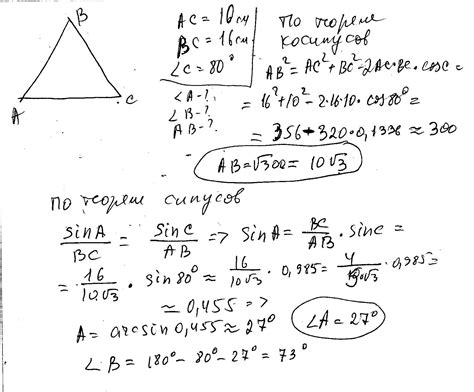 B
A
C
AC = 10 см
BC = 16 см
∠C = 80°
∠A - ?
∠B - ?
AB - ?
По теореме
косинусов
AB² = AC² + BC² - 2AC·BC·cosC =
= 16² + 10² - 2·16·10·cos80° =
= 356 - 320·0,1736 ≈ 300
AB = √300 = 10√3
по теореме синусов
sinA/BC = sinC/AB => sinA = BC/AB · sinC =
= 16/10√3 · sin80° ≈ 16/10√3 · 0,985 = 4/10√3 · 0,985 =
≈ 0,455 =>
A = arcsin 0,455 ≈ 27°
∠A = 27°
∠B = 180° - 80° - 27° = 73°